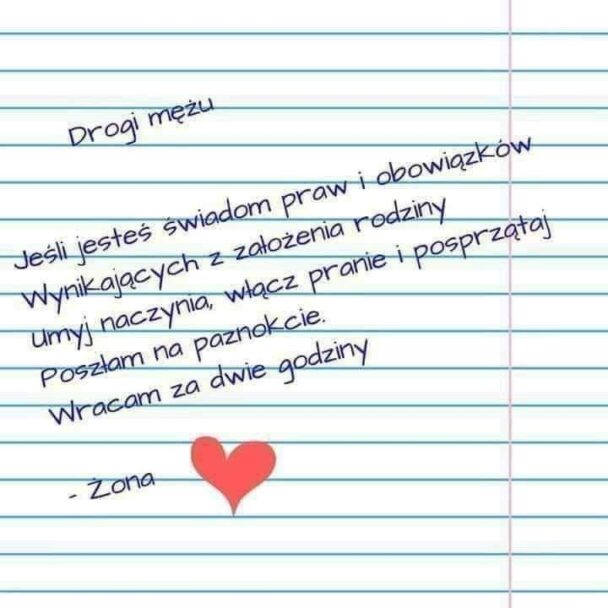 Drogi mężu
Jeśli jesteś świadom praw i obowiązków
Wynikających z założenia rodziny
umyj naczynia, włącz pranie i posprzątaj
Poszłam na paznokcie.
Wracam za dwie godziny
- Żona